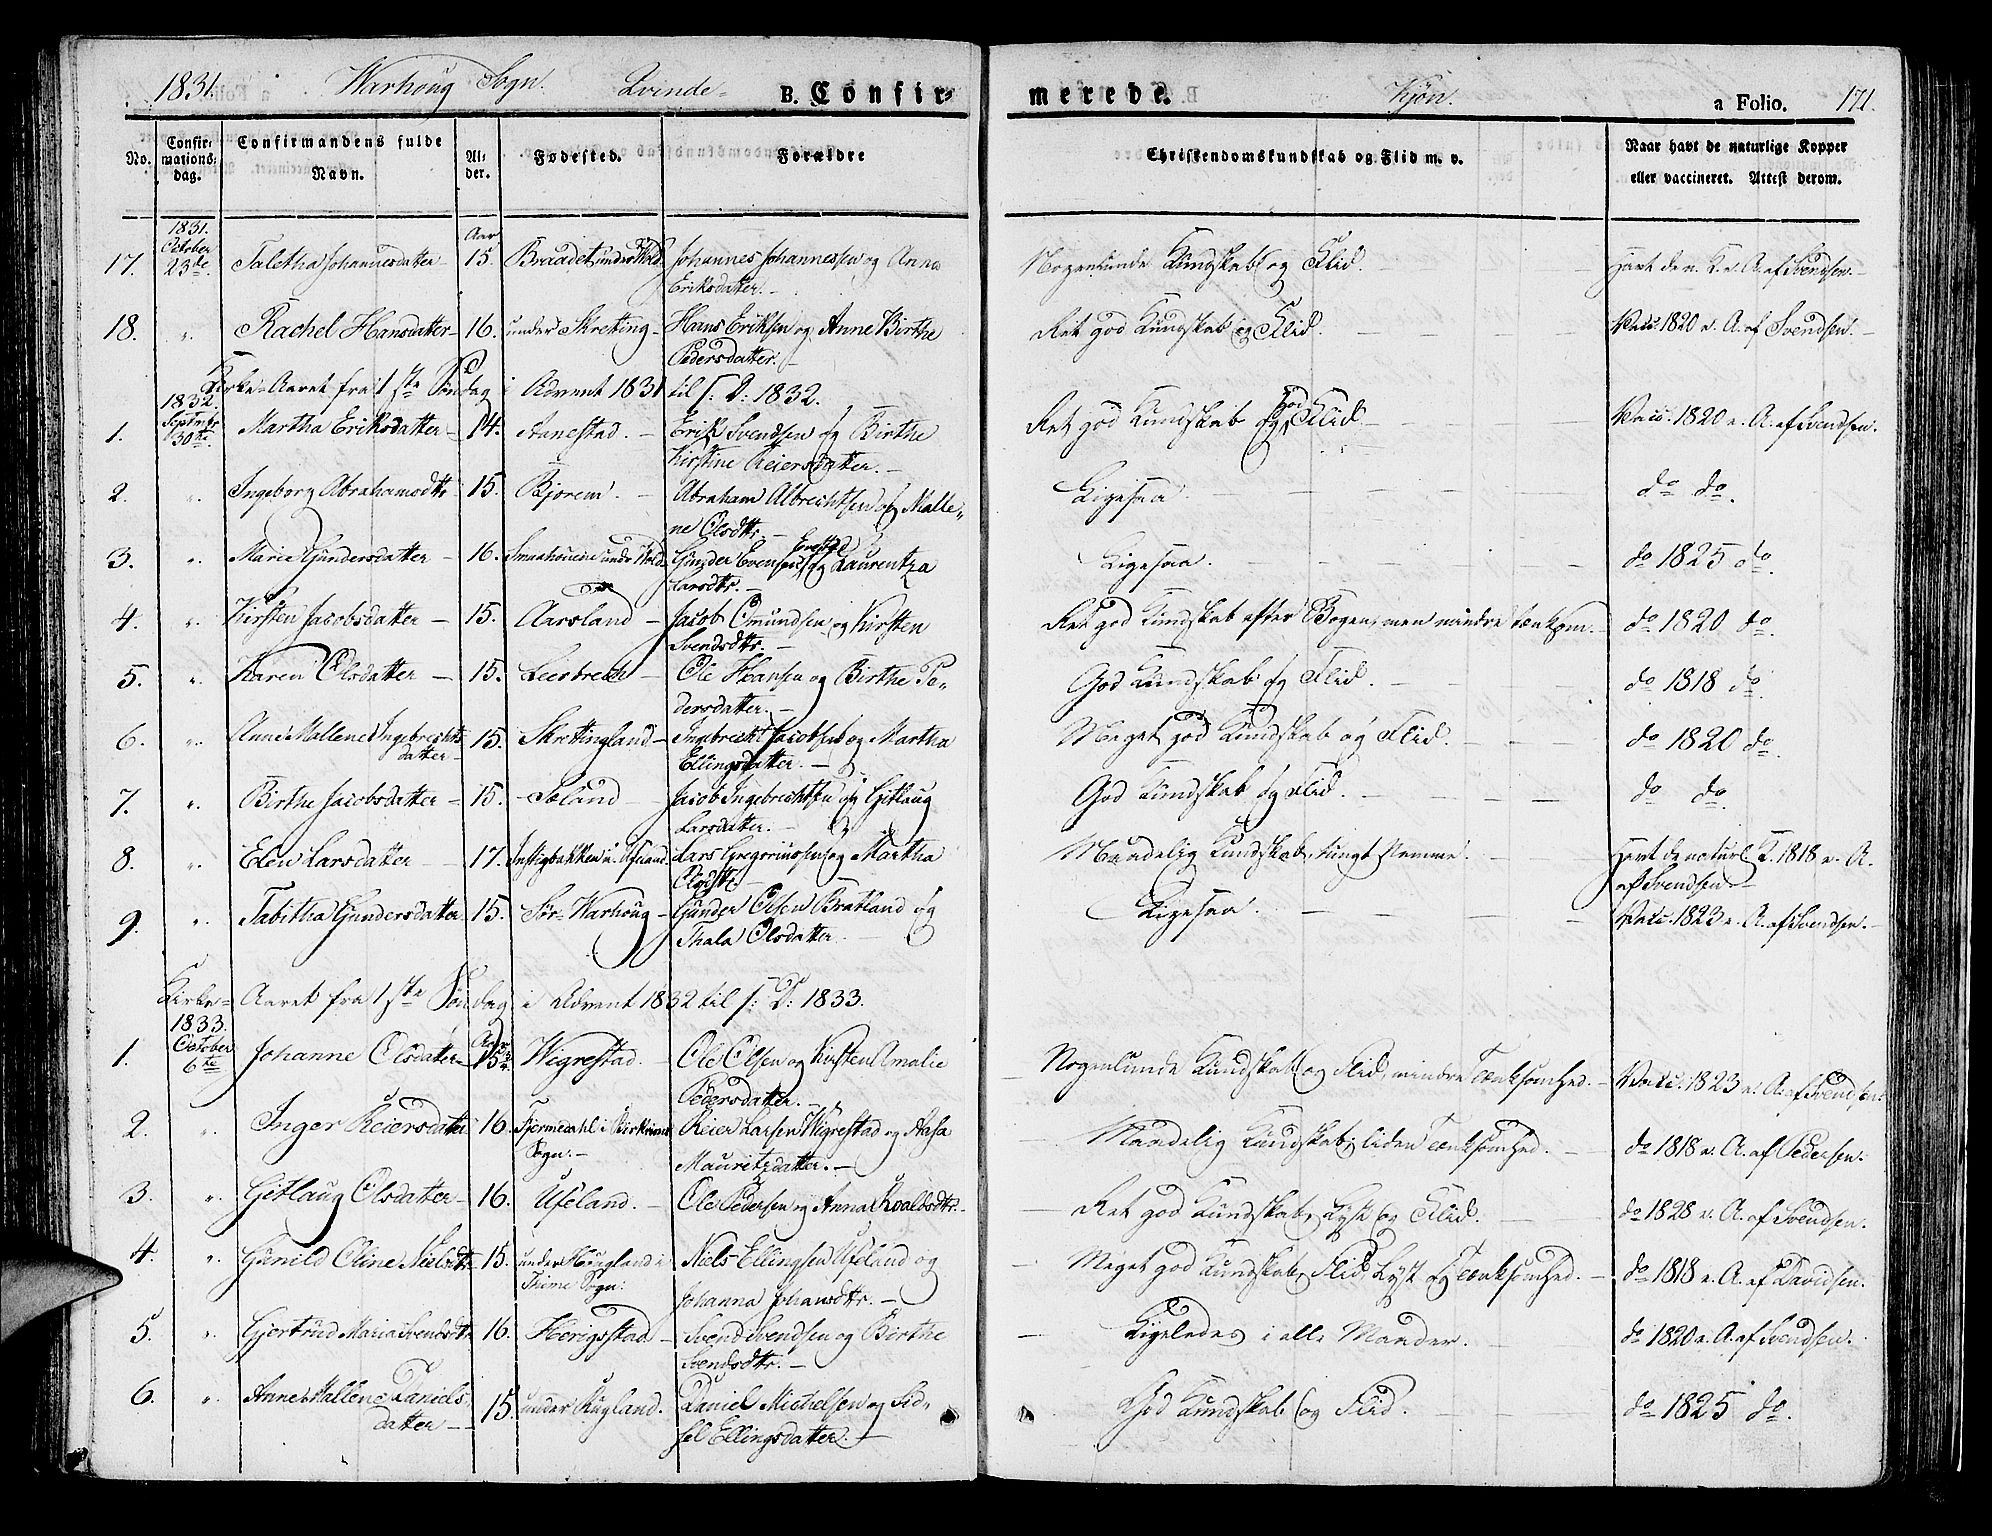 1831. Warhoug Sogn. Qvinde- B. Confir- merede. Kjøn. a Folio. 171.
No. Confir-mations-dag. Confirmandens fulde Navn. Al-der. Fødested. Forældre Christendomskundskab og Flid m. v. Naar havt de naturlige Kopper eller vaccineret. Attest derom.
1831. Aar
17. October 23de Taletha Johannesdatter 15. Braadet under Hold. Johannes Johannessen og Anna Nogenlunde Kundskab og Flid. Havt de n. K. v. A. af Svendsen.
Eriksdatter.
18. " Rachel Hansdatter 16. under Skretting Hans Eriksen og Anne Birthe Ret god Kundskab og Flid. Vacc. 1820 v. A. af Svendsen.
Pedersdatter.
Kirke-Aaret fra 1ste Søndag i Advent 1831 til s: D: 1832.
1832.
1. Septmbr 30te Martha Eriksdatter 14. Aanestad. Erik Svendsen og Birthe Ret god Kundskab og god Flid. Vacc. 1820 v. A. af Svendsen.
Kirstine Reiersdatter.
2. " Ingeborg Abrahamsdtr 15. Bjorem. Abraham Albrechtsen og Malle- Ligesaa. do do.
ne Olsdtr.
3. " Maria Gundersdatter 16. under Hold. Gunder Evensen og Laurentza Ligesaa. do 1825 do.
Larsdtr.
4. " Kirsten Jacobsdatter 15. Aarsland Jacob Omundsen og Kirsten Ret god Kundskab efter Bogen, men mindre tænksom. do 1820 do.
Svendsdtr.
5. " Karen Olsdatter 15. Leersbrech Ole Hansen og Birthe Pe- God Kundskab og Flid. do 1818 do.
dersdatter.
6. " Anne Mallene Ingebrechts 15. Skrettingland Ingebrecht Jacobsen og Martha Meget god Kundskab og Flid. do 1820 do.
datter Ellingsdatter.
7. " Birthe Jacobsdatter 15. Soland Jacob Ingebrechtsen og Gitlaug God Kundskab og Flid. do do.
Larsdatter.
8. " Elen Larsdatter 17. u. Ufeland. Lars Gregoriusen og Martha Maadelig Kundskab, tungt Nemme. Havt de naturl. K. 1818 v. A.
Olsdtr. af Svendsen
9. " Tabitha Gundersdatter 15. Sør Warhoug Gunder Olsen Bratland og Ligesaa. Vacc. 1823 v. A. af Svendsen.
Thala Olsdatter.
Kirke-Aaret fra 1ste Søndag i Advent 1832 til s: D: 1833.
1833. Aar
1. October 6te Johanne Olsdatter 15 Wigrestad. Ole Olsen og Kirsten Amalie Nogenlunde Kundskab og Flid, mindre Tænksomhed. Vacc. 1823 v. A. af Svendsen.
Pedersdatter.
2. " Inger Reiersdatter 16. i Birkrems Reier Larsen Wigrestad og Aasa Maadelig Kundskab, liden Tænksomhed. do 1818 v. A. af Pedersen.
Sogn. Mauritzdatter.
3. " Gitlaug Olsdatter 16. Ufeland. Ole Pedersen og Anna Roaldsdtr. Ret god Kundskab, Lyst og Flid. do 1828 v. A. af Svendsen.
4. " Gunild Oline Nielsdtr 15. under Hougland i Niels Ellingsen Ufeland og Meget god Kundskab, Flid, Lyst og Tænksomhed. do 1818 v. A. af Davidsen.
Thime Sogn. Johanna Johansdtr.
5. " Gjertrud Maria Svendsdtr 16. Herigstad Svend Svendsen og Birthe Ligeledes i alle Maader. do 1820 v. A. af Svendsen.
Svendsdtr.
6. " Anne Mallene Daniels 15. under Kugland. Daniel Michelsen og Sid- God Kundskab og Flid. do 1825 do.
datter sel Ellingsdatter.